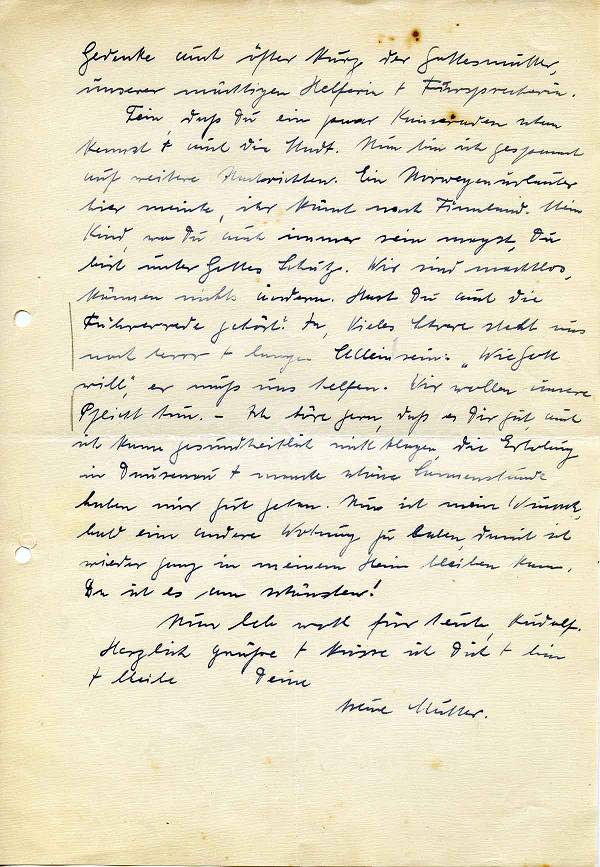 Gedenke auch öfter kurz der Gottesmutter,
unserer mächtigen Helferin + Fürsprecherin.
Fein, daß Du ein paar Kameraden schon
kennst + auch die Stadt. Nun bin ich gespannt
auf weitere Nachrichten. Ein Norwegenurlauber
hier meinte, ihr kämt nach Finnland. Mein
Kind, wo Du auch immer sein magst, Du
bist unter Gottes Schutz. Wir sind machtlos,
können nichts ändern. Hast Du auch die
Führerrede gehört? Ja, vieles Schwere steht uns
noch bevor + langes Alleinsein. „Wie Gott
will", er muß uns helfen. Wir wollen unsere
Pflicht tun. – Ich höre gern, daß es Dir gut, auch
ich kann gesundheitlich nicht klagen, die Erholung
in Dausenau + manche schöne Sonnenstunde
haben mir gut getan. Nun ist mein Wunsch,
bald eine andere Wohnung zu haben, damit ich
wieder ganz in meinem Heim bleiben kann.
Da ist es am schönsten!
Nun leb wohl für heute, Rudolf.
Herzlich grüße + küsse ich Dich + bin
+ bleibe Deine
treue Mutter.